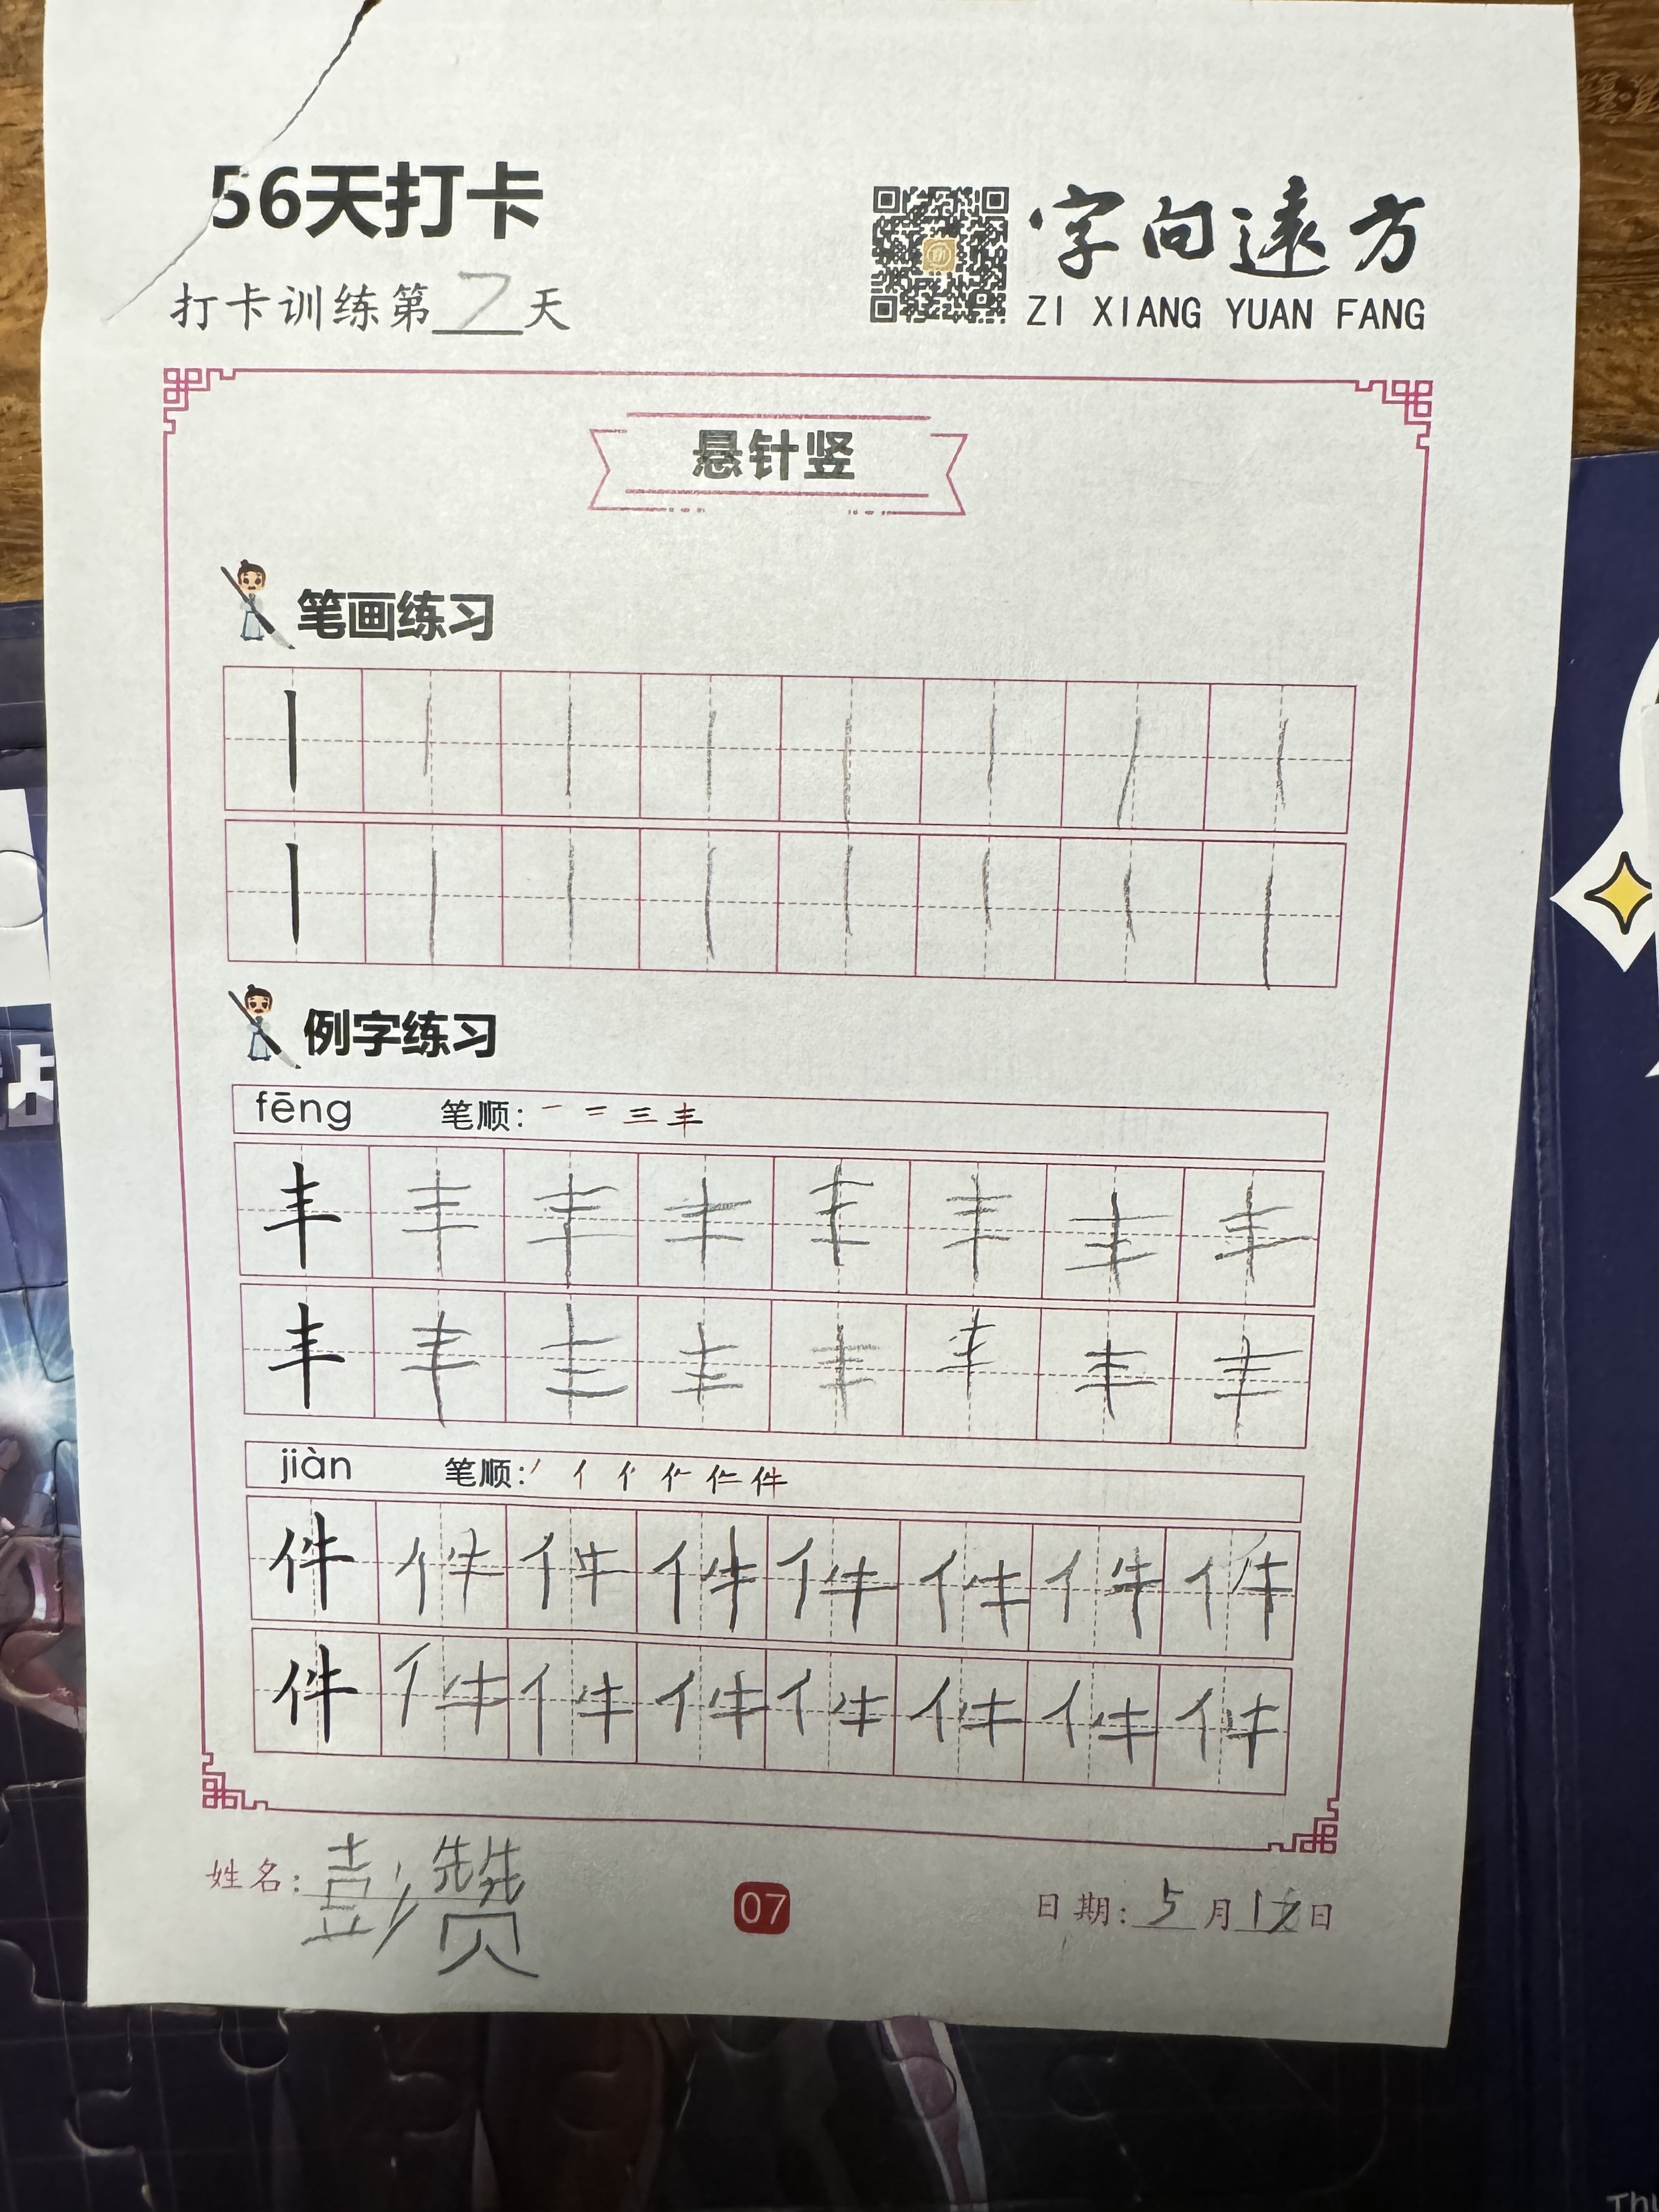 56天打卡
打卡训练第7天
字向遠方
ZI XIANG YUAN FANG
悬针竖
笔画练习
例字练习
fēng 笔顺: 一 二 三 丰
丰 丰 丰 丰 丰 丰 丰 丰
丰 丰 丰 丰 丰 丰 丰 丰
jiàn 笔顺: 丿 亻 件
件 件 件 件 件 件 件 件
件 件 件 件 件 件 件 件
姓名: 彭赞
07
日期: 5月1日